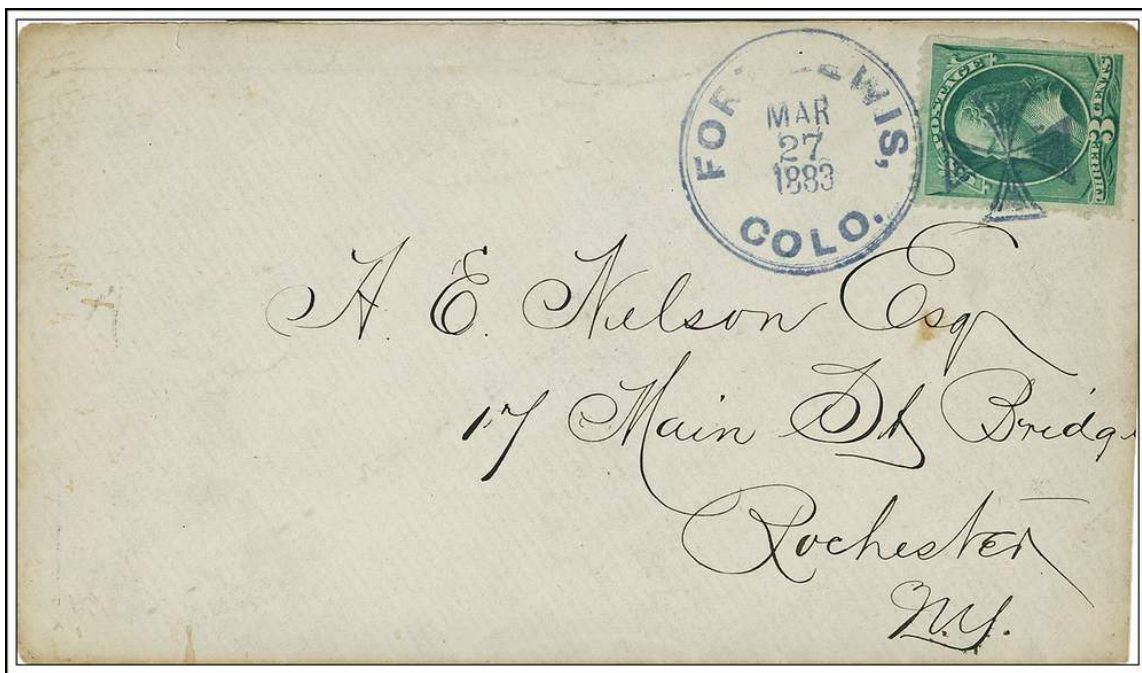 FORT LEWIS,
MAR
27
1883
COLO.
U.S. POSTAGE
3
THREE
CENTS
H. E. Nelson Esq
17 Main St Bridge
Rochester
N.Y.